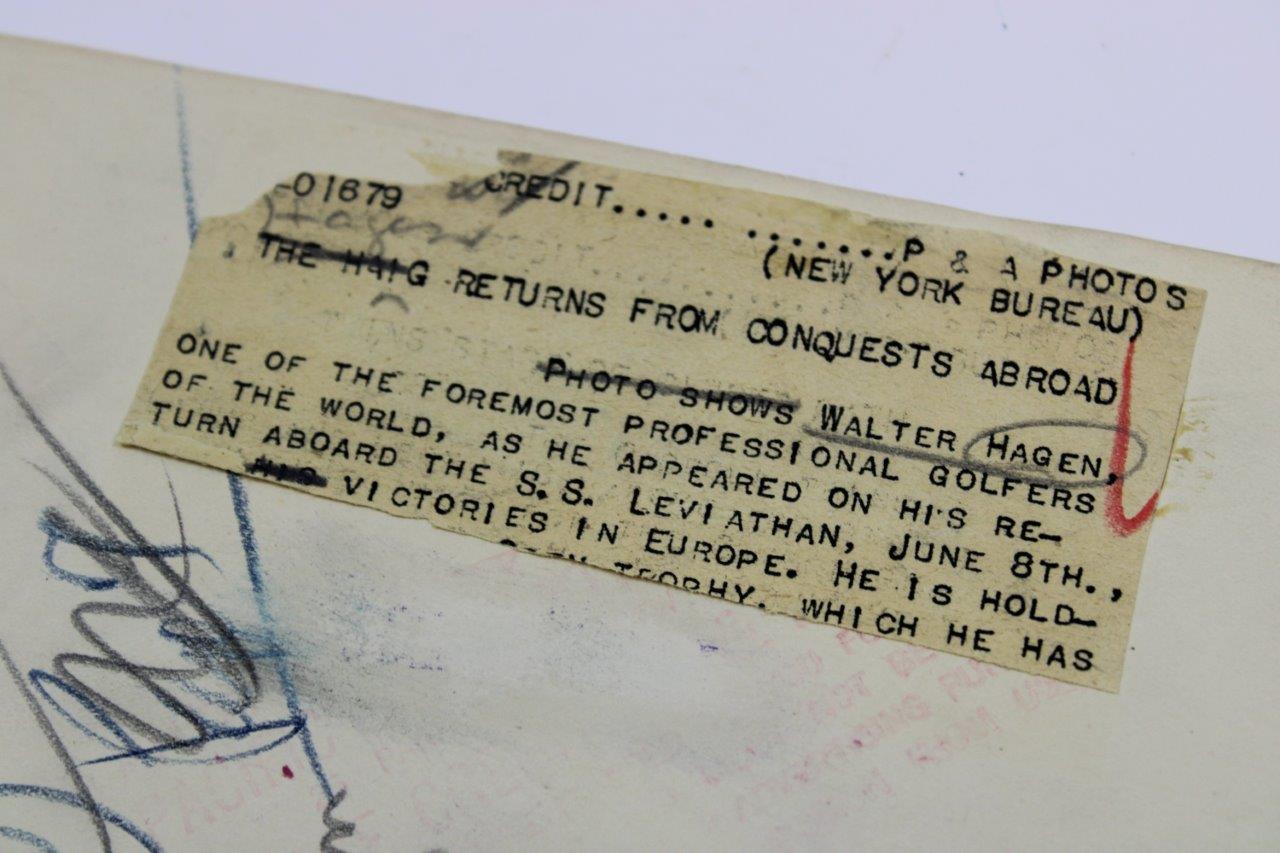 -01679 CREDIT..... .......P & A PHOTOS
Hagen
(NEW YORK BUREAU)
THE HAIG RETURNS FROM CONQUESTS ABROAD
PHOTO SHOWS WALTER HAGEN,
ONE OF THE FOREMOST PROFESSIONAL GOLFERS
OF THE WORLD, AS HE APPEARED ON HIS RE-
TURN ABOARD THE S.S. LEVIATHAN, JUNE 8TH.,
HIS VICTORIES IN EUROPE. HE IS HOLD-
OPEN TROPHY. WHICH HE HAS